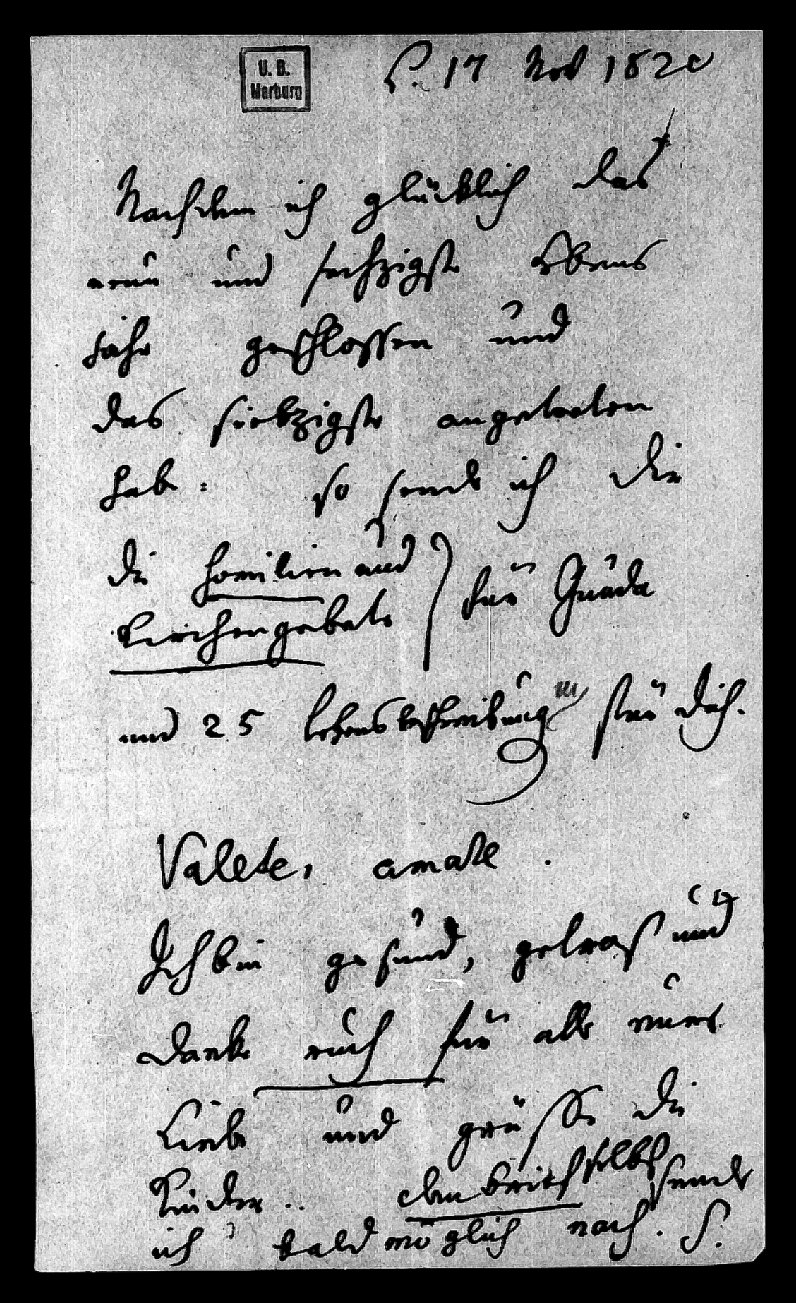 U. B.
Marburg
S. 17 Nov 1820
Nachdem ich glücklich das
neun und sechzigste Lebens
Jahr geschlossen und
das siebzigste angetreten
habe: so sende ich die
die Homilien und
Kirchengebete } für Gunda
und 25 Lebensbeschreibungen für dich.
Valete, amate.
Ich bin gesund, getrost und
danke euch für alle eure
Liebe und grüsse die
Kinder.. den Brief selbst sende
ich bald möglich nach. S.